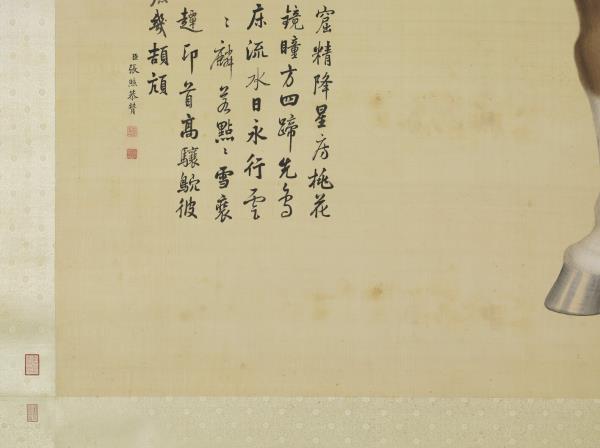 窟精降星房桃花
鏡瞳方四蹄先為
床流水日永行雲
〻麟若點〻雪裹
趯印首高驤鴕彼
幾頡頏
臣張照恭贊